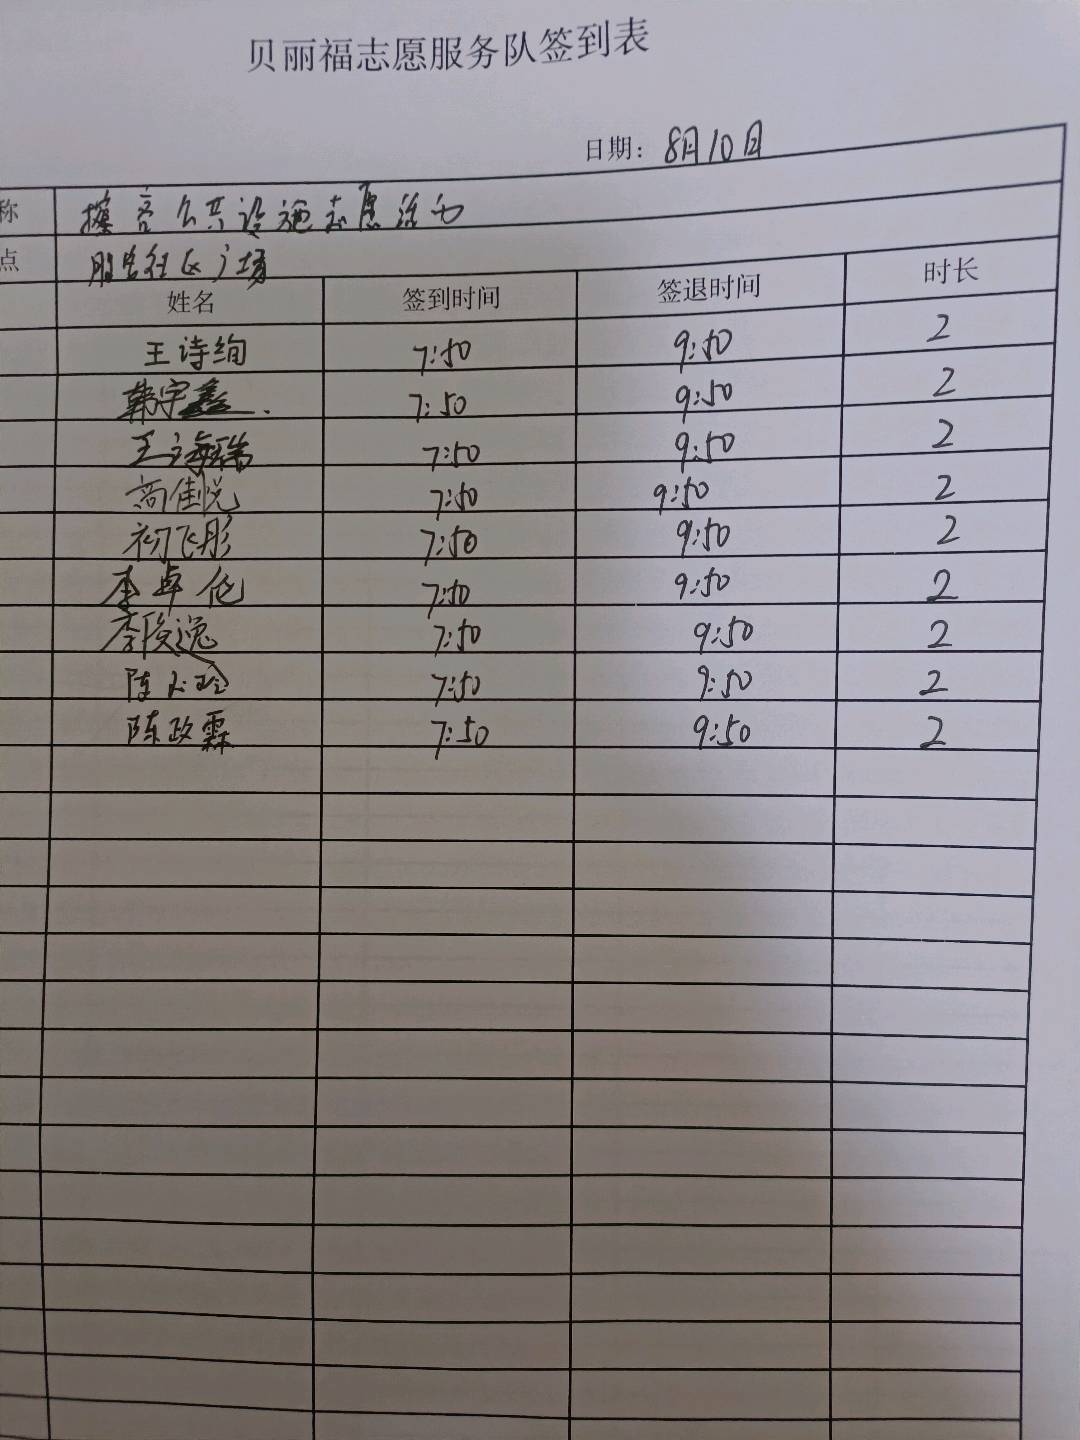 贝丽福志愿服务队签到表
日期：8月10日
称 擦 公共设施志愿活动
点 社区广场
姓名 签到时间 签退时间 时长
王诗绚 7:50 9:50 2
韩宇鑫 7:50 9:50 2
王海瑞 7:50 9:50 2
高佳悦 7:50 9:50 2
初飞彤 7:50 9:50 2
李卓伦 7:50 9:50 2
李俊逸 7:50 9:50 2
陈 玲 7:50 9:50 2
陈政霖 7:50 9:50 2